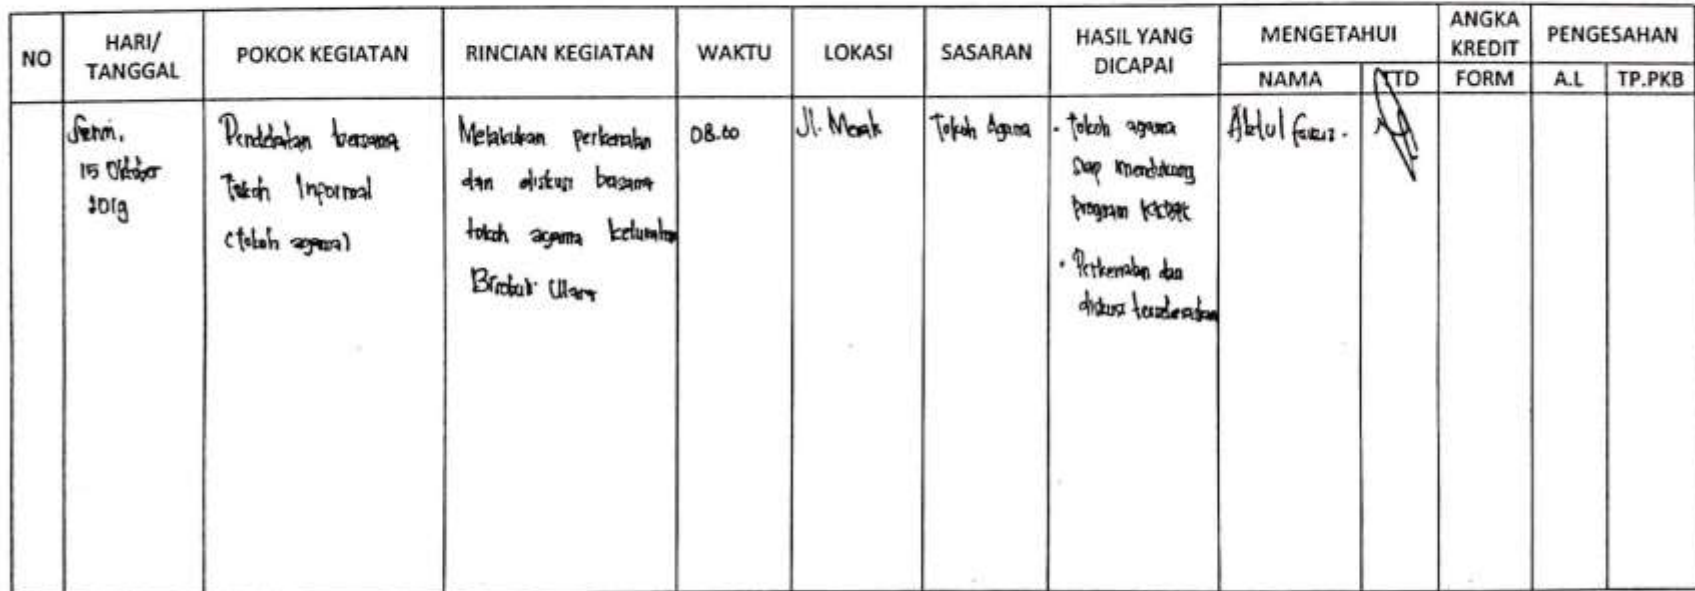 NO
HARI/
TANGGAL
POKOK KEGIATAN
RINCIAN KEGIATAN
WAKTU
LOKASI
SASARAN
HASIL YANG
DICAPAI
MENGETAHUI
NAMA
TTD
ANGKA
KREDIT
FORM
PENGESAHAN
A.L
TP.PKB
Senin,
15 Oktober
2019
Pendekatan bersama
tokoh Informal
(tokoh agama)
Melakukan perkenalan
dan diskusi bersama
tokoh agama kelurahan
Utara
08.00
Jl. Merak
Tokoh Agama
- tokoh agama
siap mendukung
program KKBPK
- Perkenalan dan
diskusi terselesaikan
Abdul